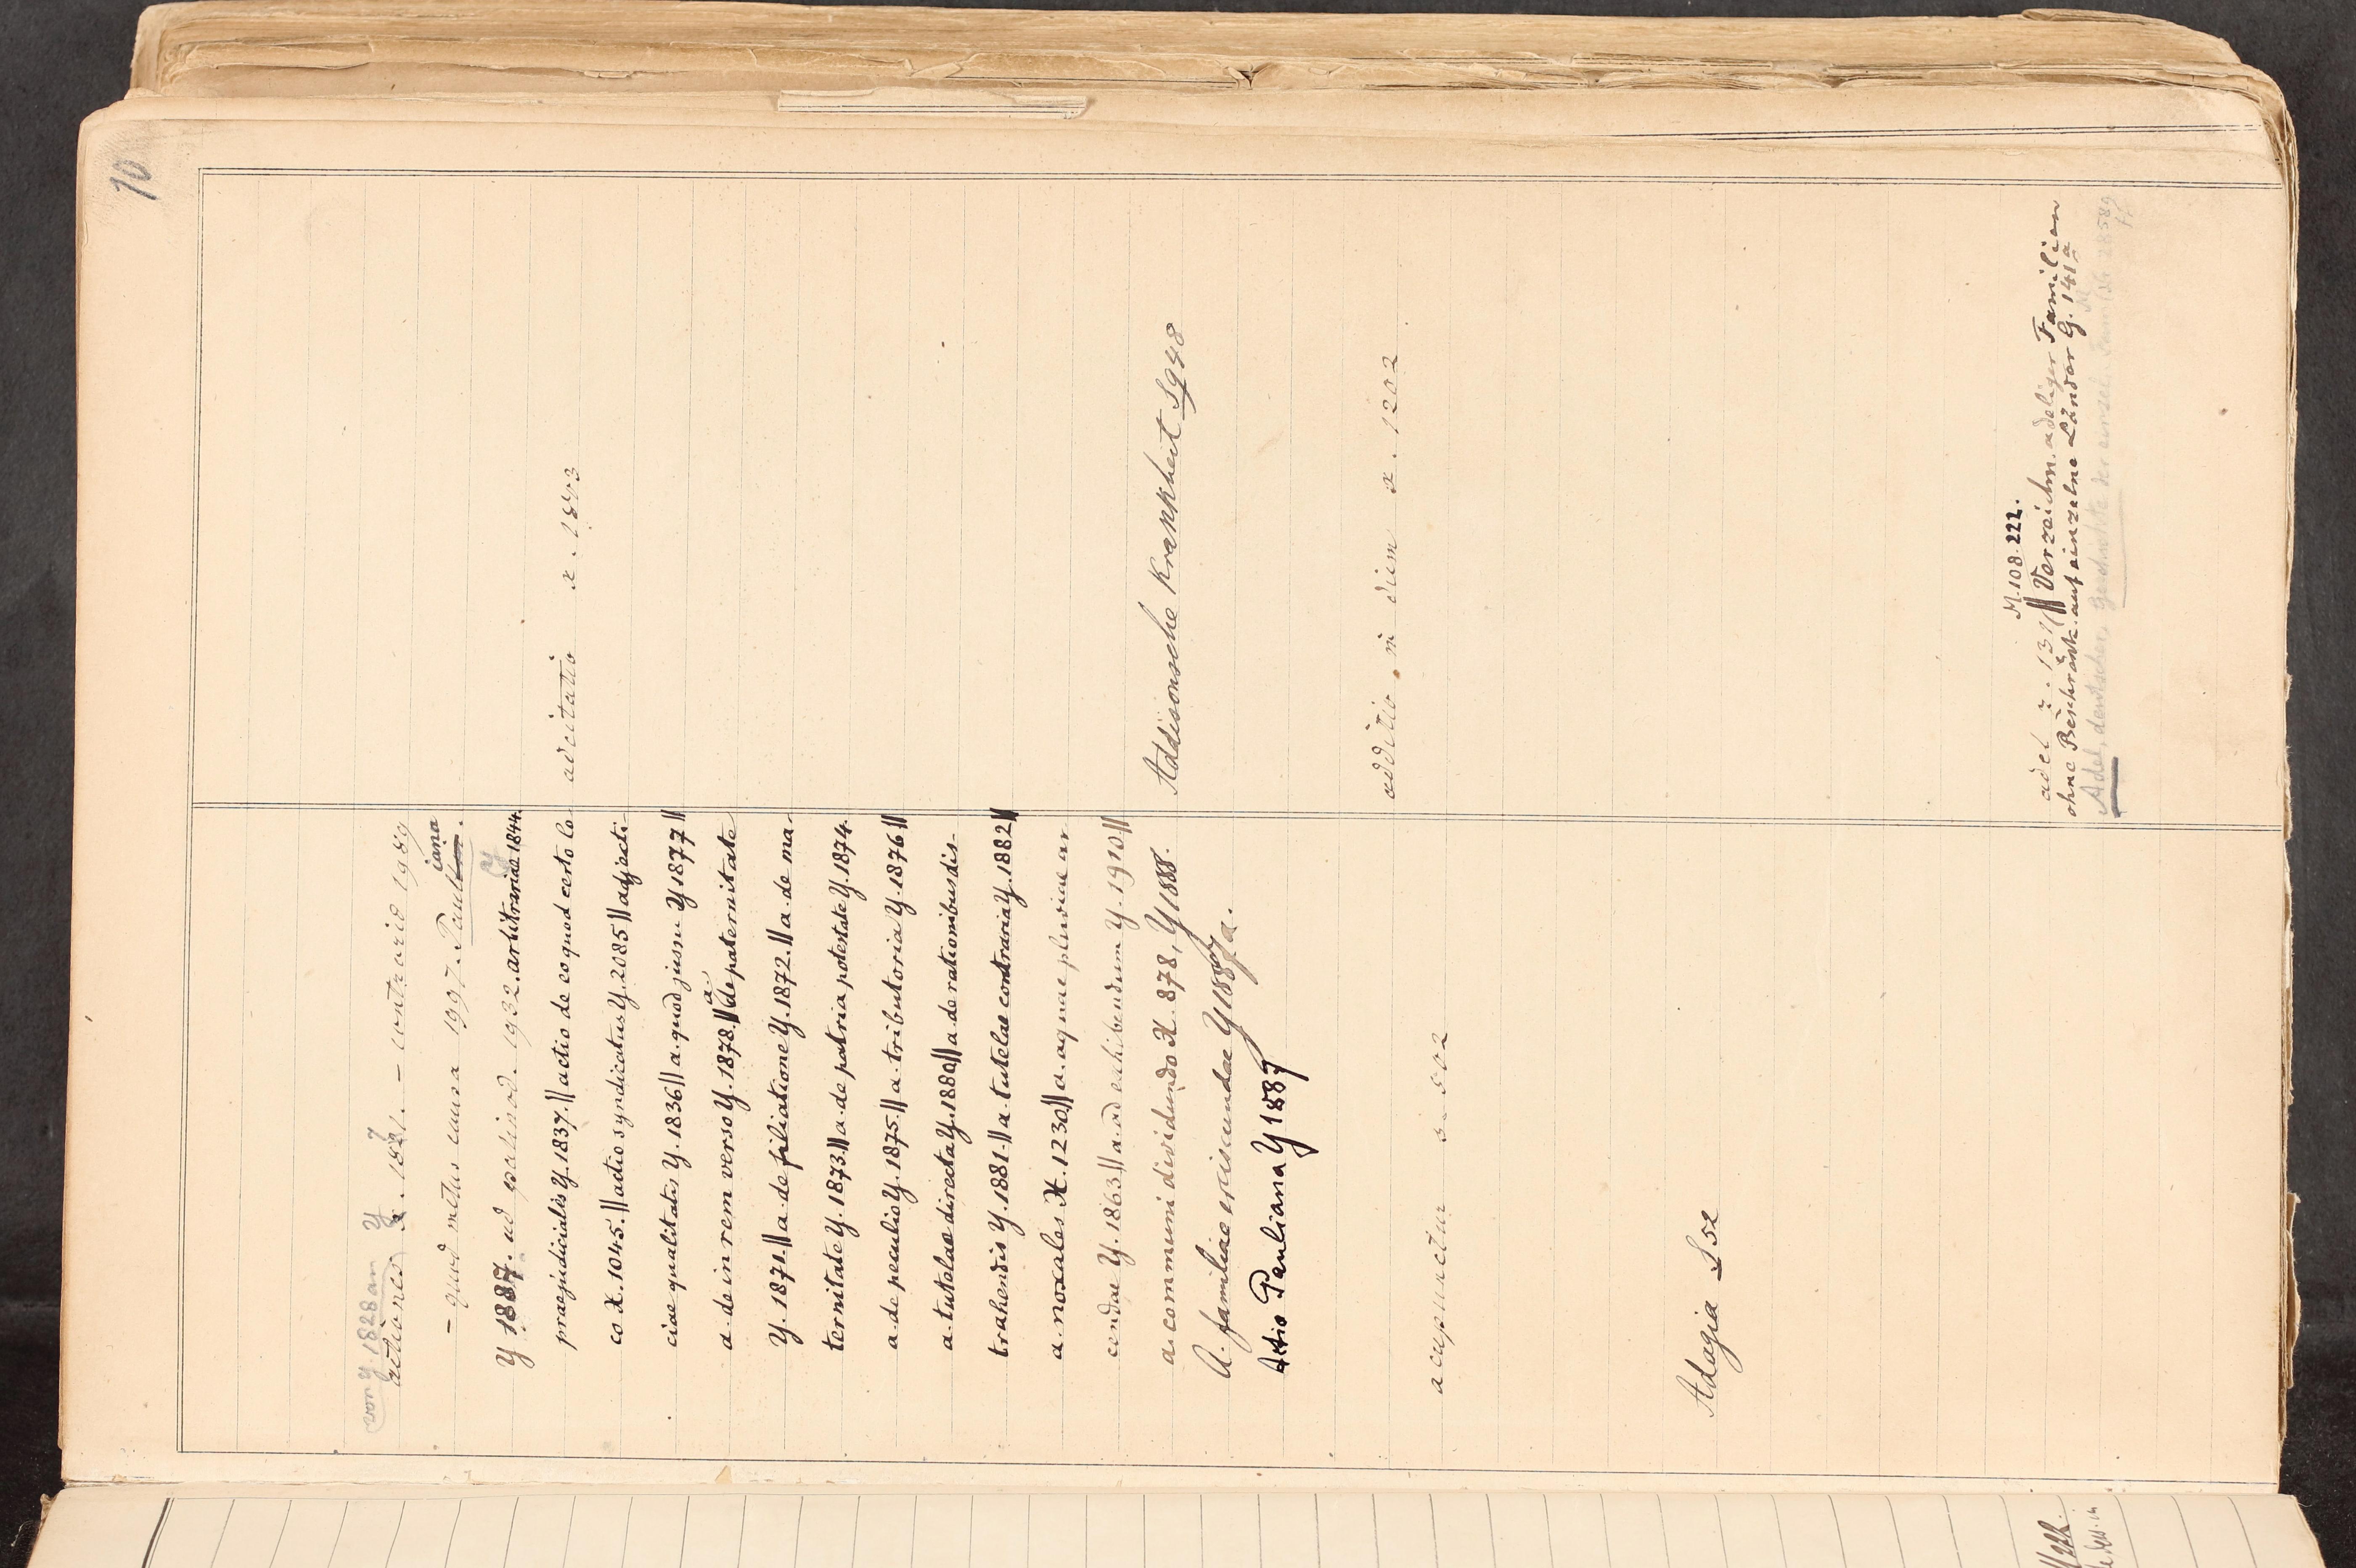 10
von Y. 1828 an
actiones Y. 1827. – contrariae 1989
– quod metus causa 1997. Pauliana.
Y 1887. ad palinod. 1932. arbitrariae 1844.
praejudiciales Y. 1837. || actio de eo quod certo lo
co X. 1045. || actio syndicatus Y. 2085 || adjecti-
ciae qualitatis Y. 1836 || a. quod jussu Y 1877 ||
a. de in rem verso Y. 1878. || a. de paternitate
Y. 1871. || a. de filiatione Y. 1872. || a. de ma-
ternitate Y. 1873. || a. de patria potestate Y. 1874.
a. de peculio Y. 1875. || a. tributoria Y. 1876 ||
a. tutelae directa Y. 1880 || a. de rationibus dis-
trahendis Y. 1881. || a. tutelae contraria Y. 1882 ||
a. noxales X. 1230. || a. aquae pluviae ar
cendae Y. 1863 || a. ad exhibendum Y. 1910 ||
a. communi dividundo X. 878, Y 1888.
A. familiae erciscundae Y 1887a.
Actio Pauliana Y 1887
acupunctur 502
Adagia S 52
adcitatio x. 1843
Addisonsche Krankheit S 948
additio in diem x. 1202
M. 108. 222.
adel z. 131 || Verzeichn. adeliger Familien
ohne Beschränk. auf einzelne Länder G. 141a
Adel, deutscher, Geschichte der einzel. Fam